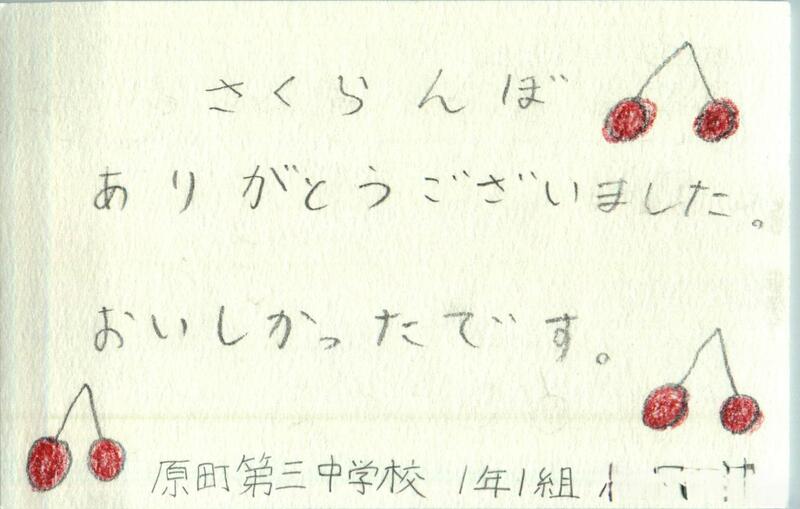 さくらんぼ
ありがとうございました。
おいしかったです。
原町第三中学校 1年1組